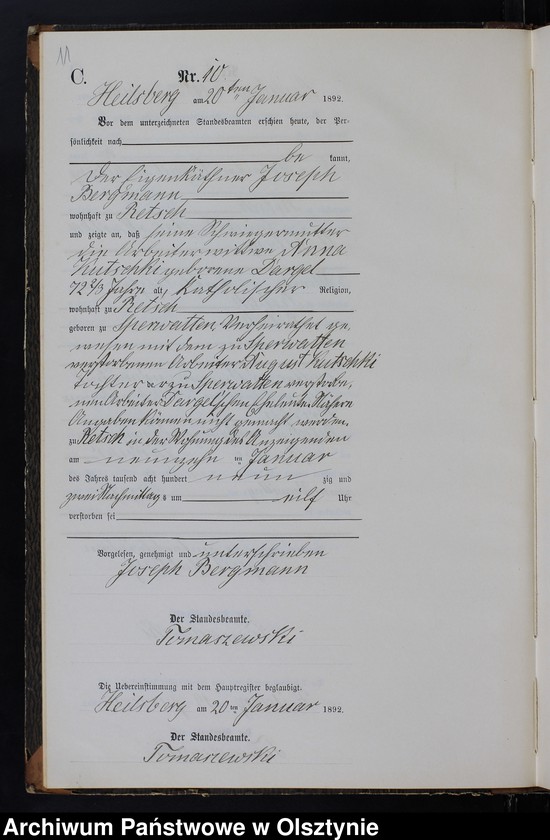 11
C.
Nr. 10
Heilsberg am 20ten Januar 1892.
Vor dem unterzeichneten Standesbeamten erschien heute, der Per-
sönlichkeit nach
be kannt,
der Eigenkäthner Joseph
Bergmann
wohnhaft zu Retsch
und zeigte an, daß seine Schwiegermutter
die Arbeiterwittwe Anna
Kutschki geborene Dargel
72 2/3 Jahre alt, katholischer Religion,
wohnhaft zu Retsch
geboren zu Sperwatten, verheirathet ge-
wesen mit dem zu Sperwatten
verstorbenen Arbeiter August Kutschki
Tochter der zu Sperwatten verstorbe-
nen Arbeiter Dargel'schen Eheleute. Nähere
Angaben können nicht gemacht werden.
zu Retsch in der Wohnung des Anzeigenden
am neunzehn ten Januar
des Jahres tausend acht hundert neun zig und
zwei Nachmittag s um eilf Uhr
verstorben sei
Vorgelesen, genehmigt und unterschrieben
Joseph Bergmann
Der Standesbeamte.
Tomaszewski
Die Uebereinstimmung mit dem Hauptregister beglaubigt.
Heilsberg am 20ten Januar 1892.
Der Standesbeamte.
Tomaszewski
Archiwum Państwowe w Olsztynie